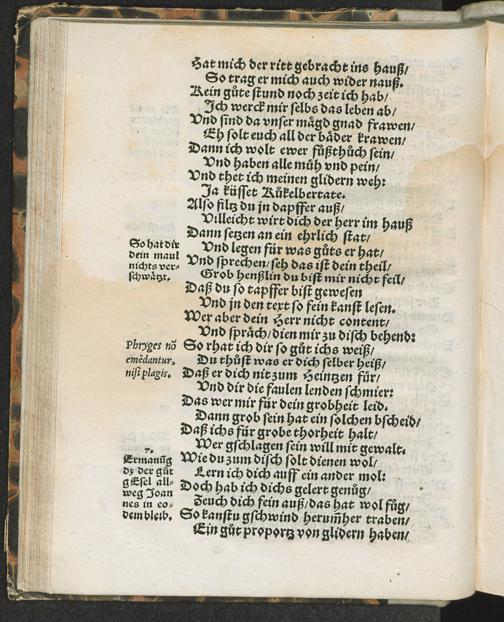 Hat mich der ritt gebracht ins hauß/
So trag er mich auch wider nauß.
Kein gůte stund noch zeit ich hab/
Ich werck mir selbs das leben ab/
Vnd sind da vnser mägd gnad frawen/
Eh solt euch all der bäder krawen/
Dann ich wolt ewer fůßthůch sein/
Vnd haben alle můh vnd pein/
Vnd thet ich meinen glidern weh:
Ja küsset Kůkelbertate.
Also filtz du jn dapffer auß/
Villeicht wirt dich der herr im hauß
Dann setzen an ein ehrlich stat/
Vnd legen für was gůts er hat/
So hat dir
dein maul
nichts ver-
schwätzt.
Vnd sprechen/seh das ist dein theil/
Grob henßlin du bist mir nicht feil/
Daß du so tapffer bist gewesen
Vnd jn den text so fein kanst lesen.
Wer aber dein Herr nicht content/
Vnd spräch/dien mir zu disch behend:
Phryges nō
emēdantur,
nisi plagis.
So rhat ich dir so gůt ichs weiß/
Du thůst was er dich selber heiß/
Daß er dich nit zum Heintzen für/
Vnd dir die faulen lenden schmier:
Das wer mir für dein grobheit leid.
Dann grob sein hat ein solchen bscheid/
Daß ichs für grobe thorheit halt/
Wer gschlagen sein will mit gewalt.
7.
Ermanūg
dz der gůt
gEsel all-
weg Joan
nes in eo-
dem bleib.
Wie du zum disch solt dienen wol/
Lern ich dich auff ein ander mol:
Doch hab ich dichs gelert genůg/
Zeuch dich fein auß/das hat wol fůg/
So kanstu gschwind herum̃her traben/
Ein gůt proportz von glidern haben/